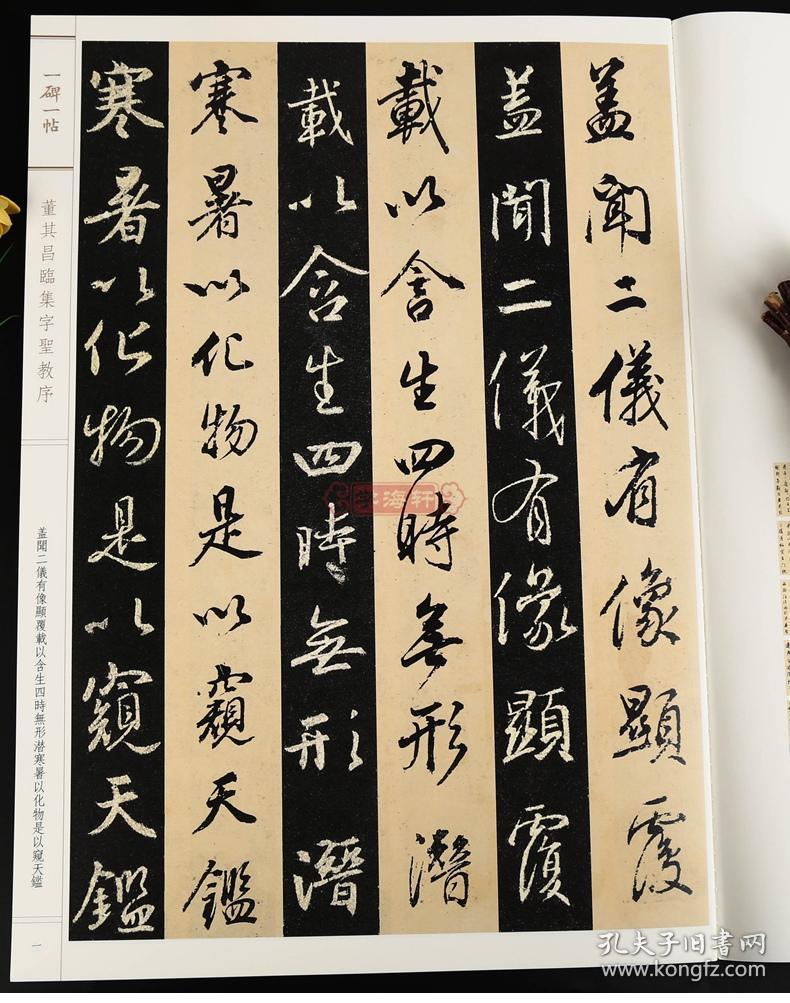 蓋聞二儀有像顯覆
蓋聞二儀有像顯覆
載以含生四時無形潛
載以含生四時無形潛
寒暑以化物是以窺天鑑
寒暑以化物是以窺天鑑
一碑一帖
董其昌臨集字聖教序
蓋聞二儀有像顯覆載以含生四時無形潜寒暑以化物是以窺天鑑
一
学海轩
孔夫子旧书网
www.kongfz.com